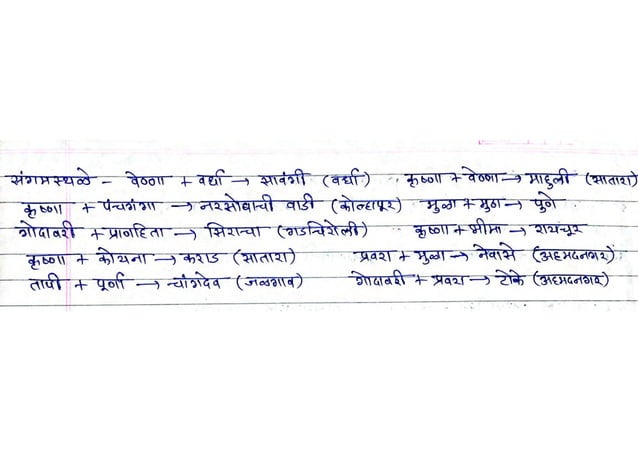 संगमस्थळे - वेण्णा + वर्धा → सावंगी (वर्धा) कृष्णा + वेण्णा → माहुली (सातारा)
कृष्णा + पंचगंगा → नरसोबाची वाडी (कोल्हापूर) मुळा + मुठा → पुणे
गोदावरी + प्राणहिता → सिरोंचा (गडचिरोली) कृष्णा + भीमा → रायचूर
कृष्णा + कोयना → कराड (सातारा) प्रवरा + मुळा → नेवासे (अहमदनगर)
तापी + पूर्णा → चांगदेव (जळगाव) गोदावरी + प्रवरा → टोके (अहमदनगर)